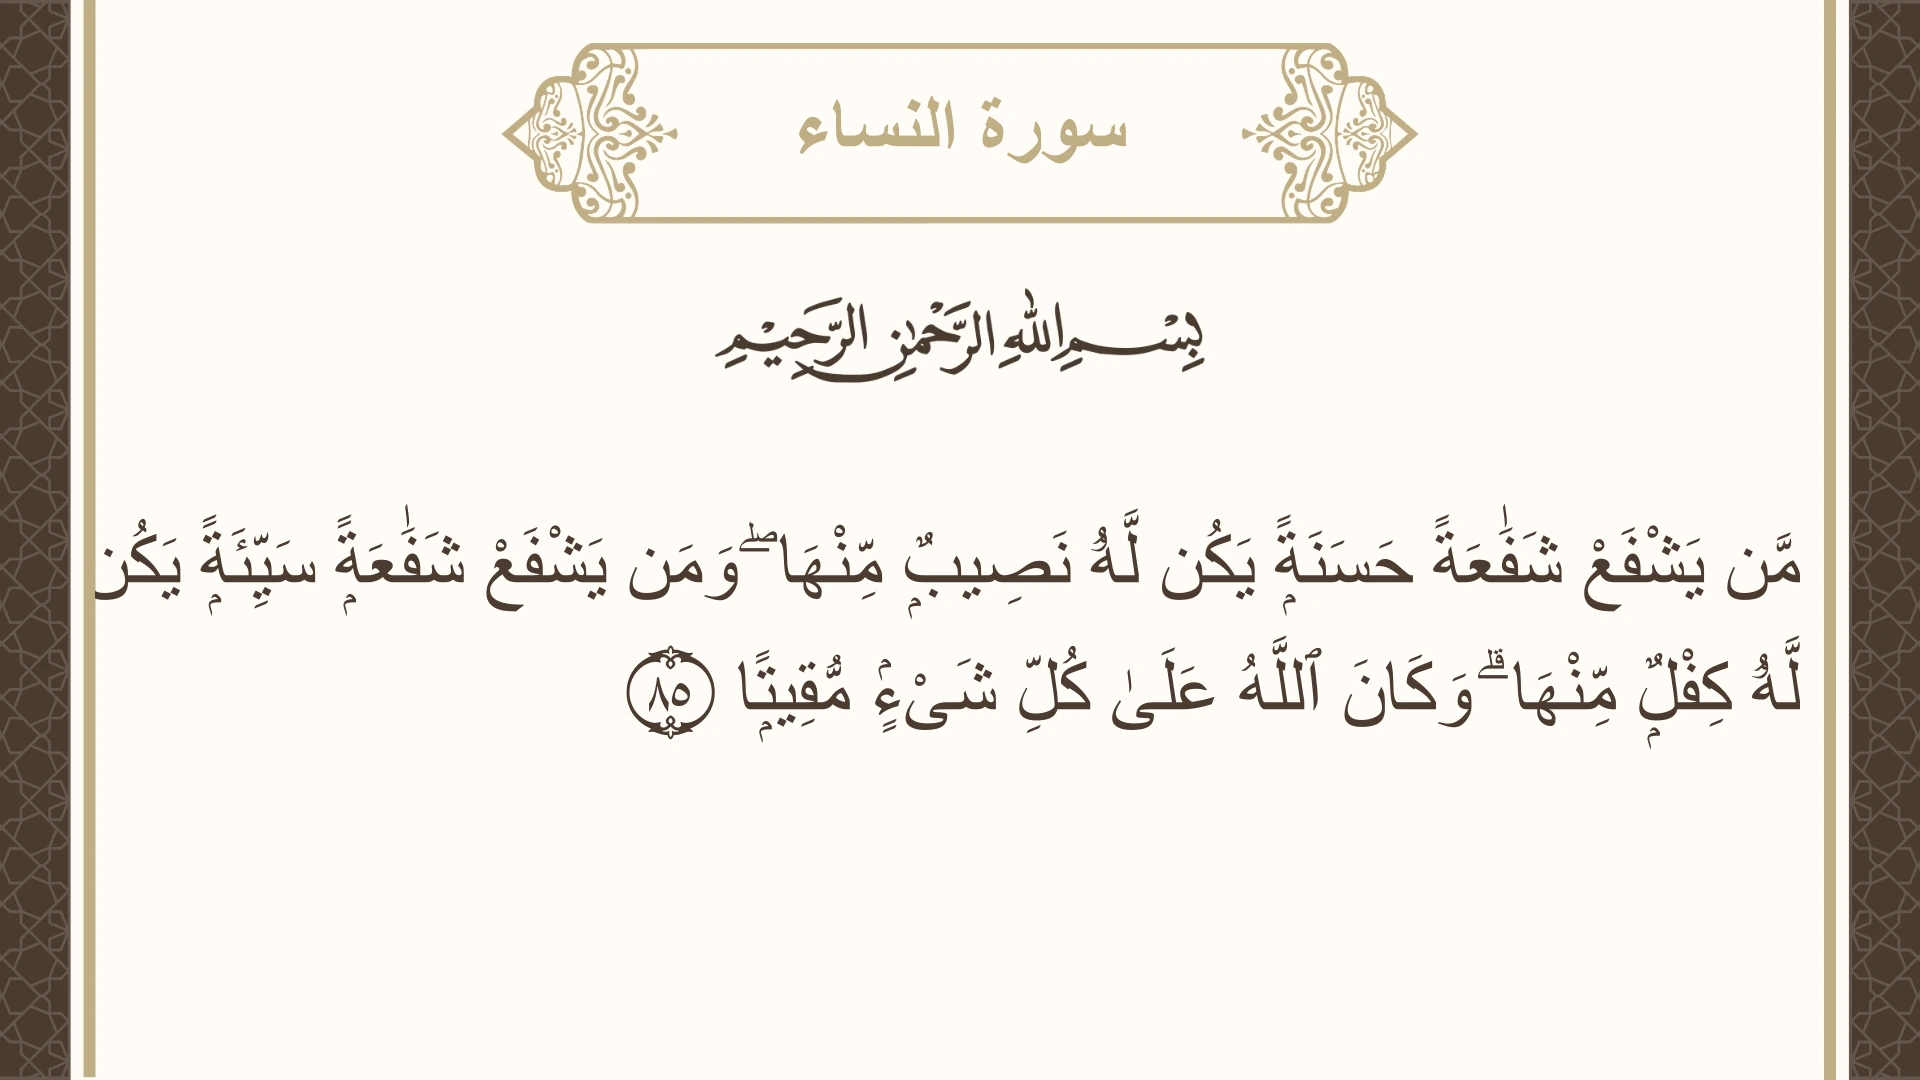 سورة النساء
بِسْمِ اللهِ الرَّحْمٰنِ الرَّحِيْمِ
مَّن يَشْفَعْ شَفَٰعَةً حَسَنَةًۭ يَكُن لَّهُۥ نَصِيبٌۭ مِّنْهَا ۖ وَمَن يَشْفَعْ شَفَٰعَةًۭ سَيِّئَةًۭ يَكُن
لَّهُۥ كِفْلٌۭ مِّنْهَا ۗ وَكَانَ ٱللَّهُ عَلَىٰ كُلِّ شَىْءٍۢ مُّقِيتًۭا ٨٥